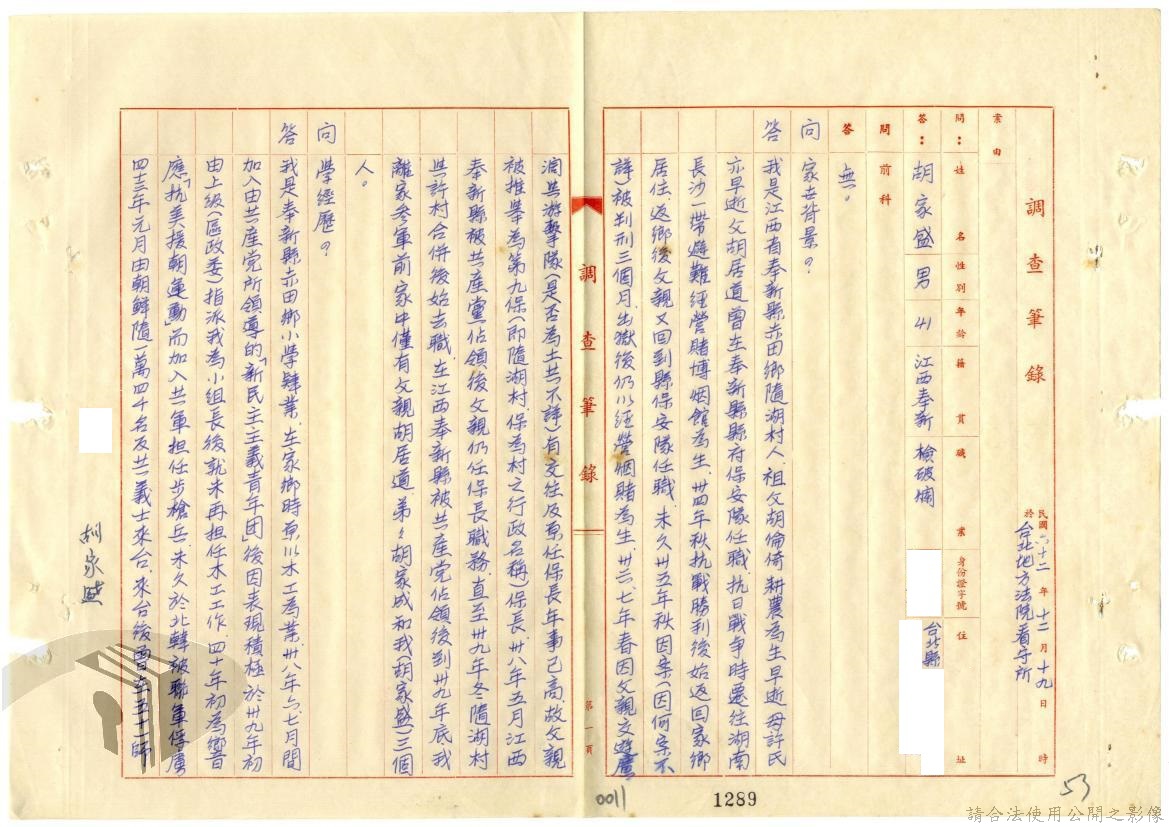 調查筆錄
民國六十二年十二月十九日 時
於台北地方法院看守所
案由
問：姓名 性別 年齡 籍貫 職業 身份證字號 住址
答：胡家盛 男 41 江西奉新 檢破爛 台北縣
問 前科
答 無。
问 家世背景？
答 我是江西省奉新縣赤田鄉隨湖村人，祖父胡倫倚耕農為生早逝，母許氏
亦早逝，父胡居道曾在奉新縣縣府保安隊任職，抗日戰争時遷往湖南
長沙一帶避難經營賭博烟館為生，卅四年秋抗戰勝利後始返回家鄉
居住，返鄉後父親又回到縣保安隊任職，未久卅五年秋因案（因何案不
詳）被判刑三個月，出獄後仍以經營烟賭為生，卅六、七年春因父親交遊廣
濶與游擊隊（是否為土共不詳）有交往及原任保長年事已高，故父親
被推舉為第九保（即隨湖村，保為村之行政名稱）保長，卅八年五月江西
奉新縣被共產黨佔領後父親仍任保長職務，直至卅九年冬隨湖村
與許村合併後始去職，在江西奉新縣被共產党佔領後到卅九年底我
離家參軍前家中僅有父親胡居道、弟々胡家成和我（胡家盛）三個
人。
问 學經歷？
答 我是奉新縣赤田鄉小學肄業，在家鄉時原以木工為業，卅八年六、七月間
加入由共產党所領導的「新民主主義青年团」後因表現積極於卅九年初
由上級（區政委）指派我為小組長後，就未再担任木工工作，四十年初為響
應「抗美援朝運動」而加入共軍担任步槍兵，未久於北韓被聯軍俘虜
四十三年元月由朝鮮隨一萬四千名反共義士來台，來台後曾在五十一師
胡家盛
調查筆錄
第一頁
0011
1289
53
請合法使用公開之影像